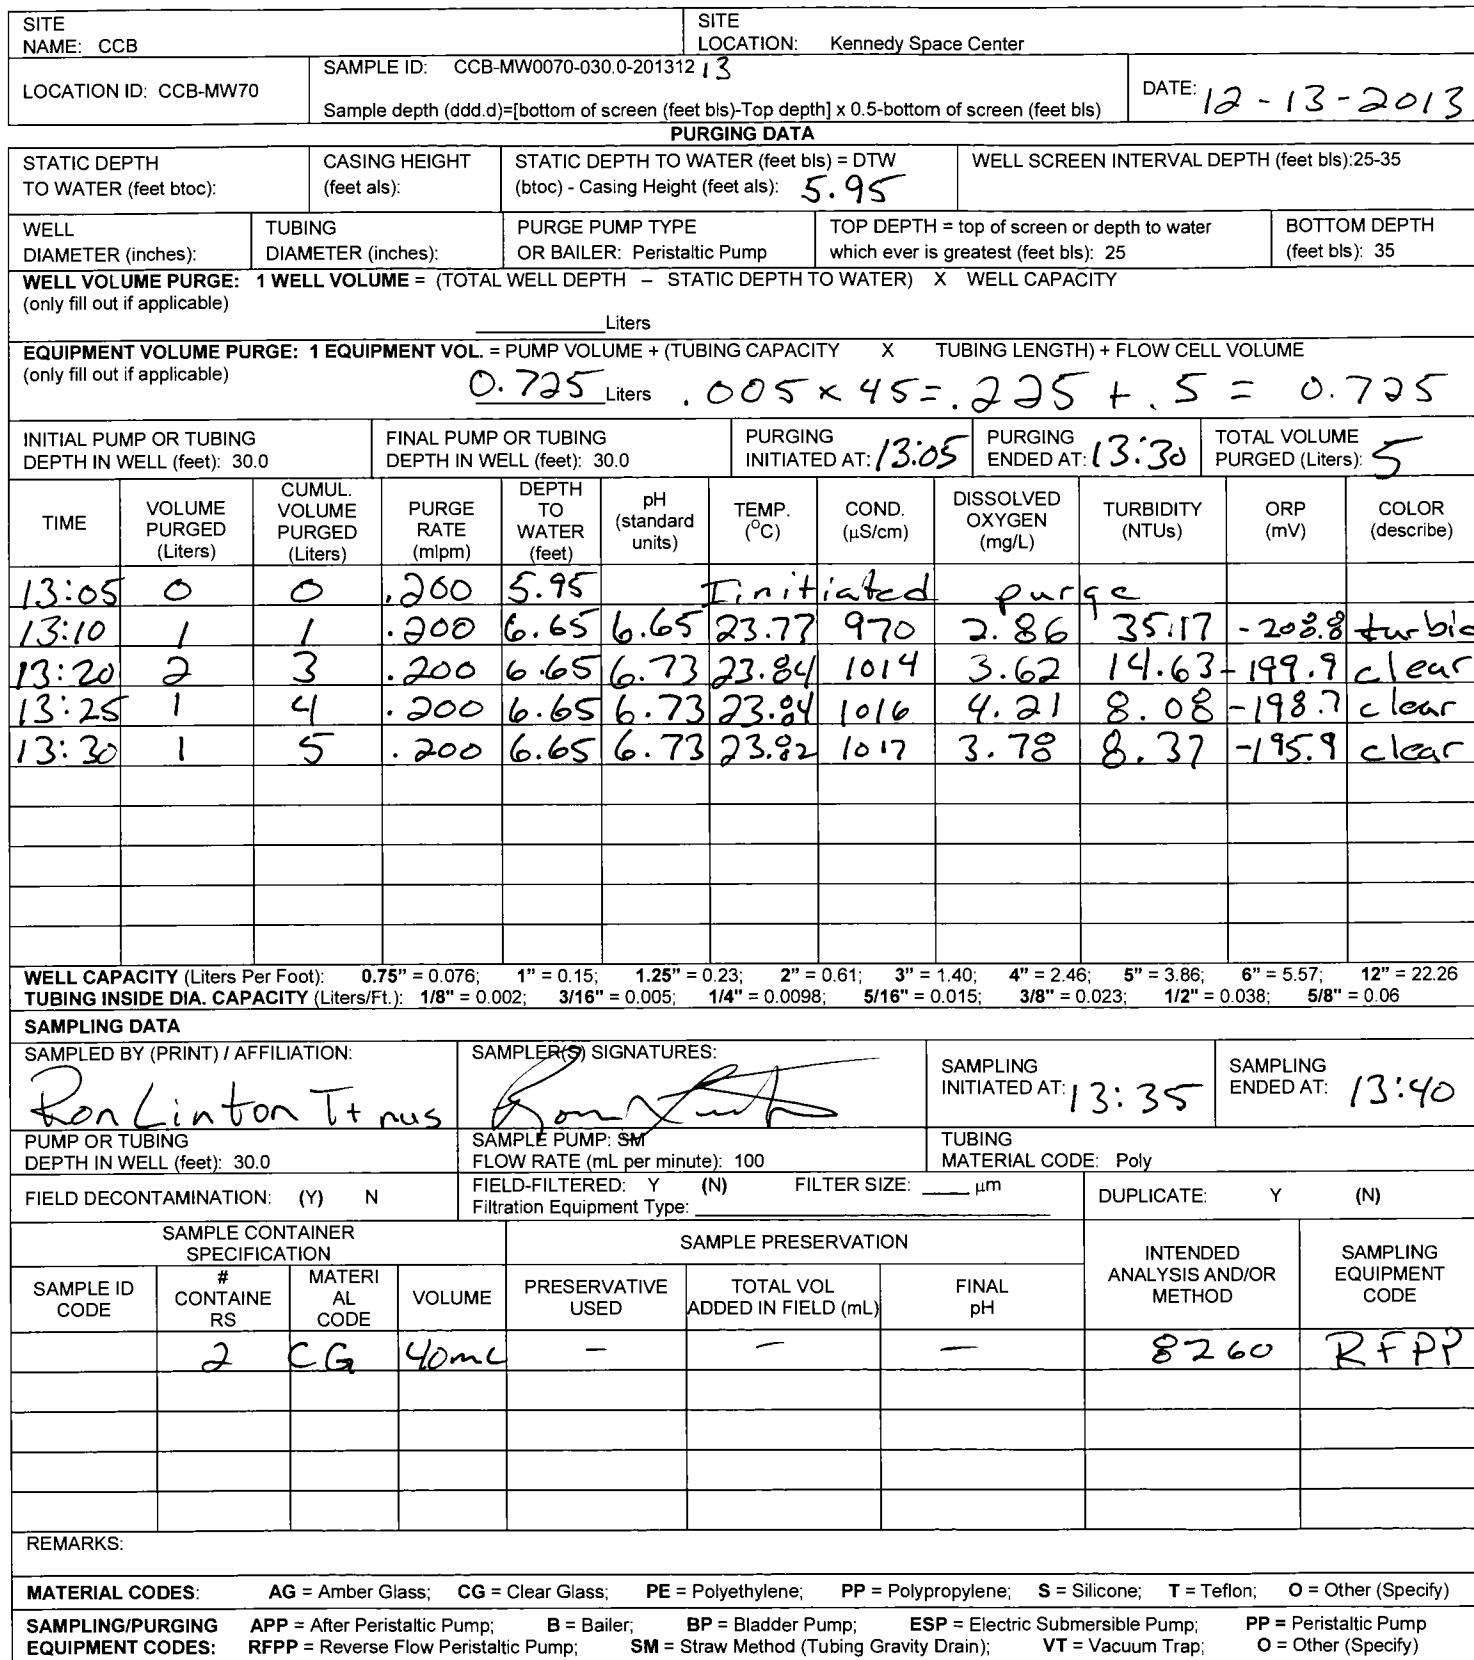 SITE NAME: CCB
SITE LOCATION: Kennedy Space Center
LOCATION ID: CCB-MW70
SAMPLE ID: CCB-MW0070-030.0-20131213
Sample depth (ddd.d)=[bottom of screen (feet bls)-Top depth] x 0.5-bottom of screen (feet bls)
DATE: 12-13-2013
PURGING DATA
STATIC DEPTH TO WATER (feet btoc):
CASING HEIGHT (feet als):
STATIC DEPTH TO WATER (feet bls) = DTW (btoc) - Casing Height (feet als): 5.95
WELL SCREEN INTERVAL DEPTH (feet bls):25-35
WELL DIAMETER (inches):
TUBING DIAMETER (inches):
PURGE PUMP TYPE OR BAILER: Peristaltic Pump
TOP DEPTH = top of screen or depth to water which ever is greatest (feet bls): 25
BOTTOM DEPTH (feet bls): 35
WELL VOLUME PURGE: 1 WELL VOLUME = (TOTAL WELL DEPTH – STATIC DEPTH TO WATER) X WELL CAPACITY
(only fill out if applicable)
Liters
EQUIPMENT VOLUME PURGE: 1 EQUIPMENT VOL. = PUMP VOLUME + (TUBING CAPACITY X TUBING LENGTH) + FLOW CELL VOLUME
(only fill out if applicable)
0.725 Liters .005 x 45 = .225 + .5 = 0.725
INITIAL PUMP OR TUBING DEPTH IN WELL (feet): 30.0
FINAL PUMP OR TUBING DEPTH IN WELL (feet): 30.0
PURGING INITIATED AT: 13:05
PURGING ENDED AT: 13:30
TOTAL VOLUME PURGED (Liters): 5
TIME VOLUME PURGED (Liters) CUMUL. VOLUME PURGED (Liters) PURGE RATE (mlpm) DEPTH TO WATER (feet) pH (standard units) TEMP. (°C) COND. (µS/cm) DISSOLVED OXYGEN (mg/L) TURBIDITY (NTUs) ORP (mV) COLOR (describe)
13:05 0 0 .200 5.95 Iinitiated purge
13:10 1 1 .200 6.65 6.65 23.77 970 2.86 35.17 -208.8 turbid
13:20 2 3 .200 6.65 6.73 23.84 1014 3.62 14.63 -199.9 clear
13:25 1 4 .200 6.65 6.73 23.84 1016 4.21 8.08 -198.7 clear
13:30 1 5 .200 6.65 6.73 23.82 1017 3.78 8.37 -195.9 clear
WELL CAPACITY (Liters Per Foot): 0.75" = 0.076; 1" = 0.15; 1.25" = 0.23; 2" = 0.61; 3" = 1.40; 4" = 2.46; 5" = 3.86; 6" = 5.57; 12" = 22.26
TUBING INSIDE DIA. CAPACITY (Liters/Ft.): 1/8" = 0.002; 3/16" = 0.005; 1/4" = 0.0098; 5/16" = 0.015; 3/8" = 0.023; 1/2" = 0.038; 5/8" = 0.06
SAMPLING DATA
SAMPLED BY (PRINT) / AFFILIATION: Ron Linton
SAMPLER(S) SIGNATURES:
SAMPLING INITIATED AT: 13:35
SAMPLING ENDED AT: 13:40
PUMP OR TUBING DEPTH IN WELL (feet): 30.0
SAMPLE PUMP: SM
FLOW RATE (mL per minute): 100
TUBING MATERIAL CODE: Poly
FIELD DECONTAMINATION: (Y) N
FIELD-FILTERED: Y (N) FILTER SIZE: ____ µm
Filtration Equipment Type:
DUPLICATE: Y (N)
SAMPLE CONTAINER SPECIFICATION
SAMPLE PRESERVATION
INTENDED ANALYSIS AND/OR METHOD
SAMPLING EQUIPMENT CODE
SAMPLE ID CODE # CONTAINERS MATERIAL CODE VOLUME PRESERVATIVE USED TOTAL VOL ADDED IN FIELD (mL) FINAL pH
2 CG 40mL — — — 8260 RFPP
REMARKS:
MATERIAL CODES: AG = Amber Glass; CG = Clear Glass; PE = Polyethylene; PP = Polypropylene; S = Silicone; T = Teflon; O = Other (Specify)
SAMPLING/PURGING EQUIPMENT CODES: APP = After Peristaltic Pump; B = Bailer; BP = Bladder Pump; ESP = Electric Submersible Pump; PP = Peristaltic Pump
RFPP = Reverse Flow Peristaltic Pump; SM = Straw Method (Tubing Gravity Drain); VT = Vacuum Trap; O = Other (Specify)